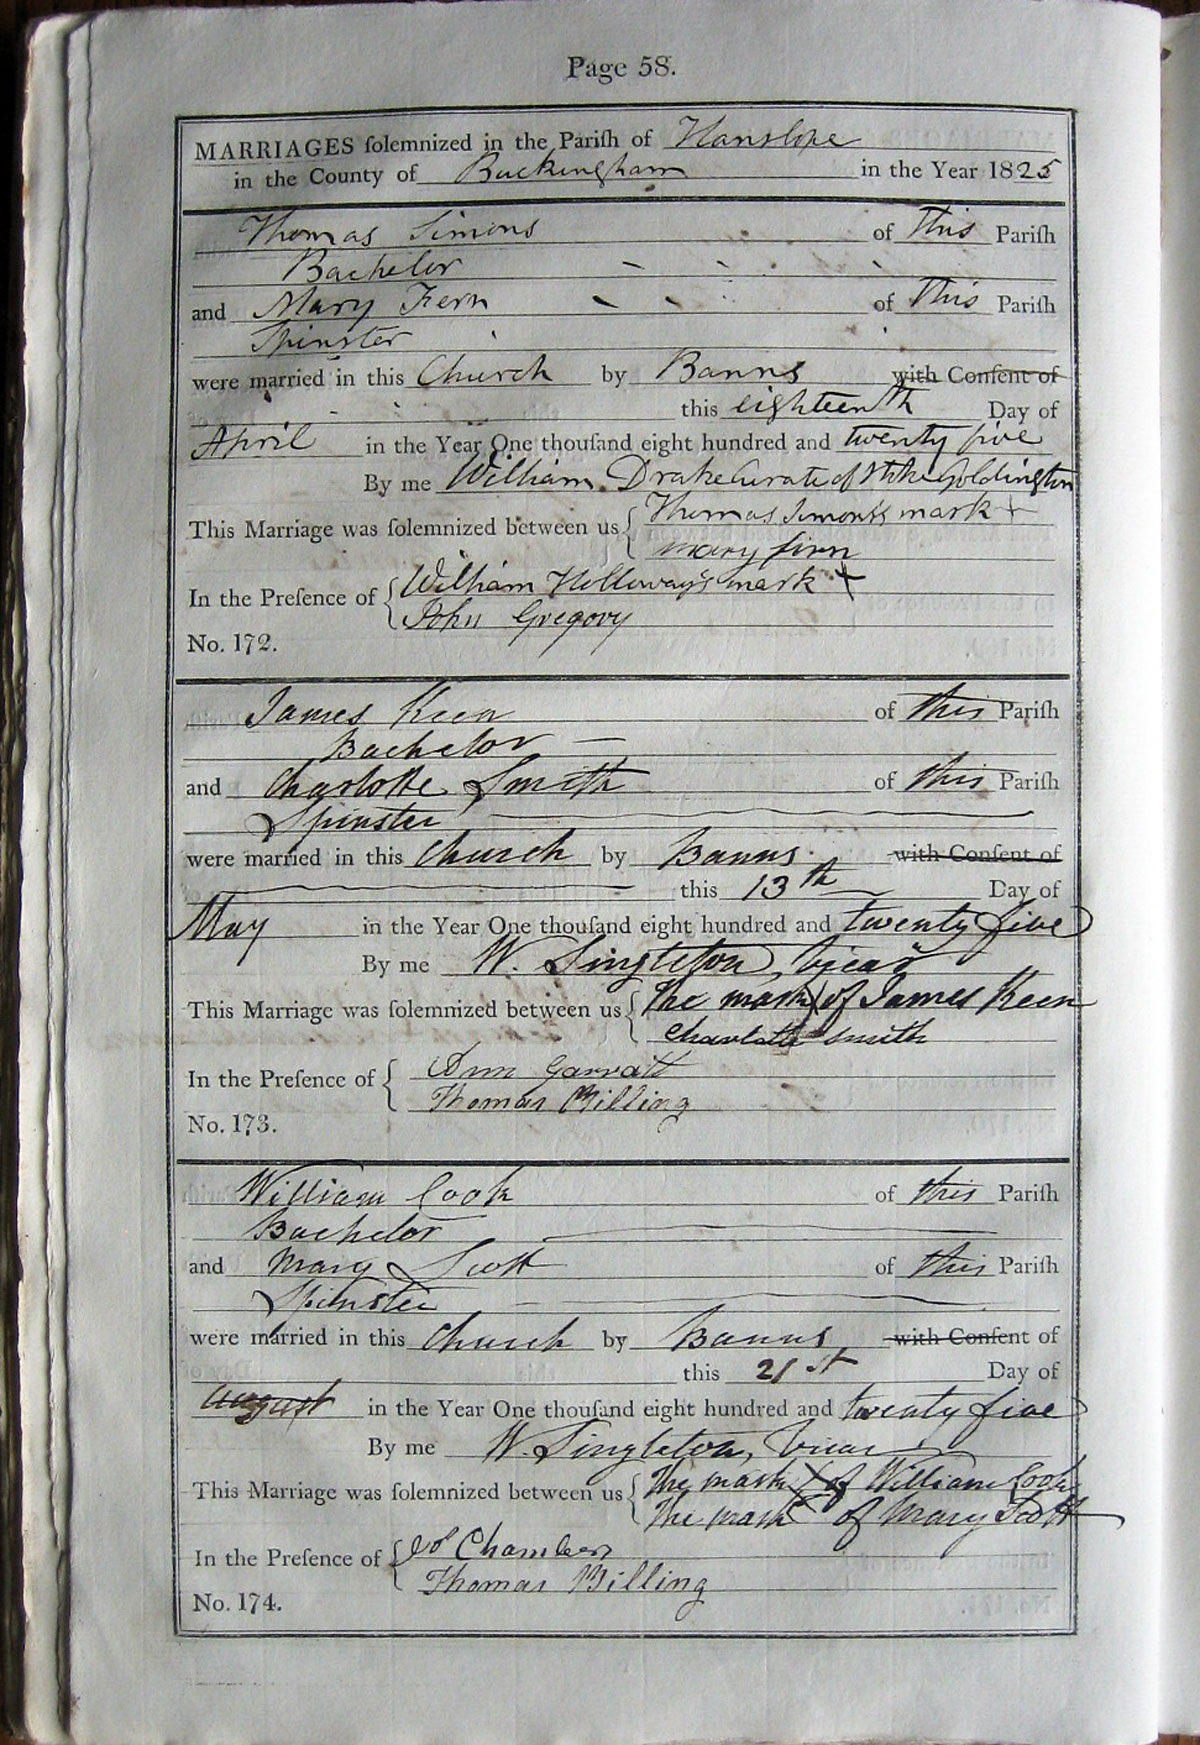 Page 58.
MARRIAGES ſolemnized in the Pariſh of Hanslope
in the County of Buckingham in the Year 1825
Thomas Simons of this Pariſh
Bachelor
and Mary Fern of this Pariſh
Spinster
were married in this Church by Banns with Conſent of
this eighteenth Day of
April in the Year One thouſand eight hundred and twenty five
By me William Drake Curate of Stoke Goldington
This Marriage was ſolemnized between us { Thomas Simons's mark +
mary firn
In the Preſence of { William Holloway's mark +
John Gregory
No. 172.
James Keen of this Pariſh
Bachelor
and Charlotte Smith of this Pariſh
Spinster
were married in this Church by Banns with Conſent of
this 13th Day of
May in the Year One thouſand eight hundred and twenty five
By me W. Singleton, Vicar
This Marriage was ſolemnized between us { The mark X of James Keen
Charlotte Smith
In the Preſence of { Ann Garratt
Thomas Billing
No. 173.
William Cook of this Pariſh
Bachelor
and Mary Scott of this Pariſh
Spinster
were married in this Church by Banns with Conſent of
this 21st Day of
August in the Year One thouſand eight hundred and twenty five
By me W. Singleton, Vicar
This Marriage was ſolemnized between us { The mark X of William Cook
The mark of Mary Scott
In the Preſence of { Chambers
Thomas Billing
No. 174.